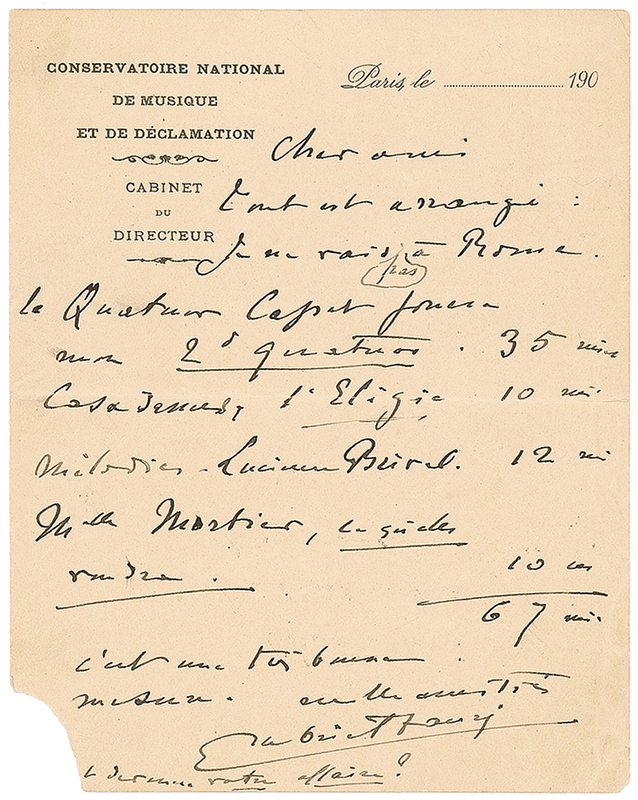 CONSERVATOIRE NATIONAL
DE MUSIQUE
ET DE DÉCLAMATION
CABINET
DU
DIRECTEUR
Paris, le 190
Cher ami
Tout est arrangé :
Je ne vais pas à Rome.
le Quatuor Capet jouera
mon 2d quatuor . 35 min
Casadesus, l'Elégie 10 mi
Mélodies - Lucienne Bréval. 12 mi
Melle Mortier, ce qu'elle
voudra . 10 m
67 mi
c'est une très bonne
mesure. mille amitiés
Gabriel Fauré
votre affaire ?